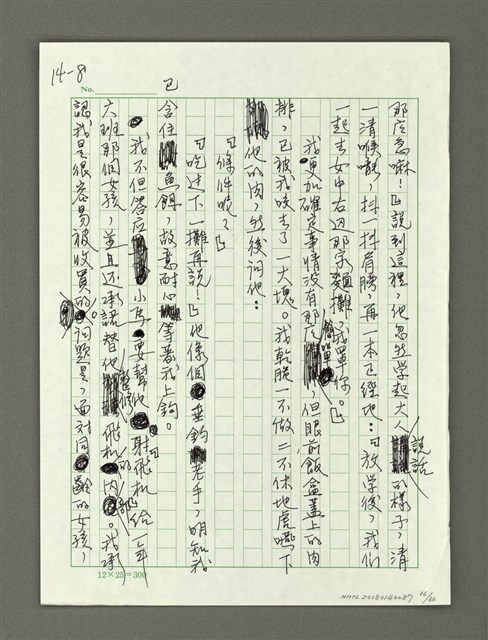 14-8
No.
那麼急嘛!」說到這裡,他忽然學起大人說話的樣子,清
一清喉嚨,抖一抖肩膀,再一本正經地:「放學後,我們
一起去女中右边那家麵攤,我單你。」
我更加確定事情没有那麼簡單,但眼前飯盒蓋上的肉
排,已被我咬去了一大塊。我乾脆一不做二不休地虎嚥下
他的肉,然後问他:
「條件呢?」
「吃过下一攤再說!」他像個垂釣老手,明知我
已
含住魚餌,故意耐心等著我上鈎。
我不但答应小馬要幫他射飛机給一年
六班那個女孩,並且还承諾替他飛机的内部。我承
認我是很容易被收買的。问題是,面对同齡的女孩,
12×25=300
NMTL20180140087